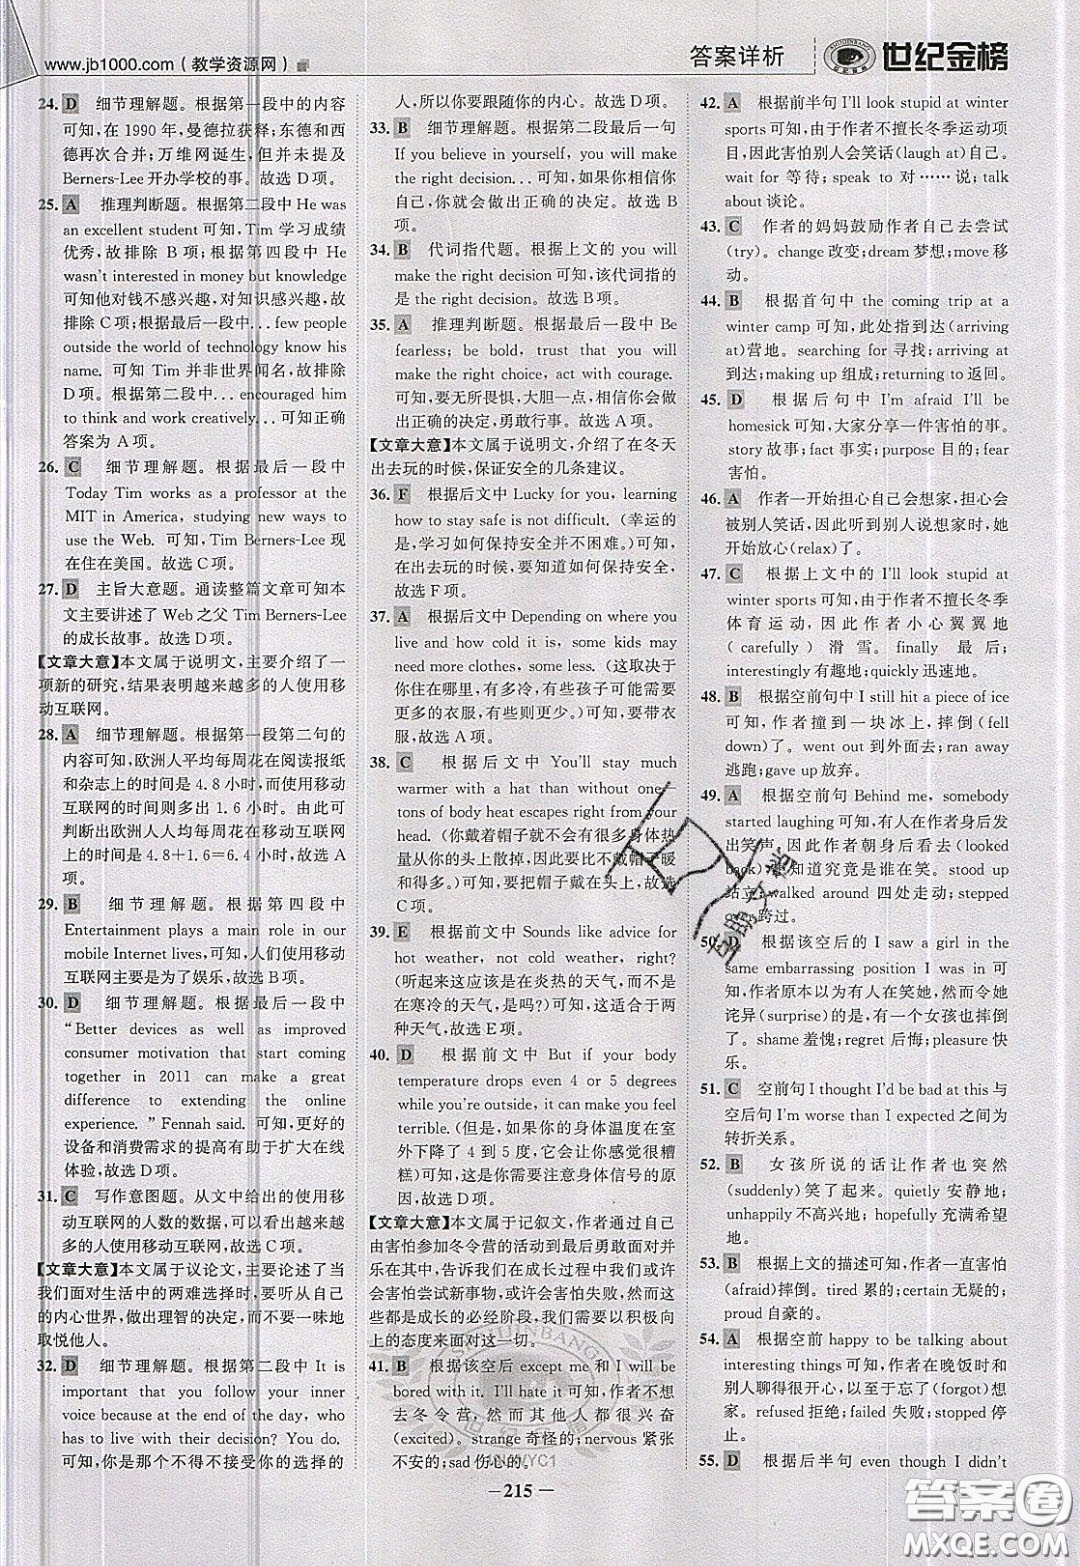 www.jb1000.com(教学资源网)
答案详析
世纪金榜
24. D 细节理解题。根据第一段中的内容
可知,在 1990 年,曼德拉获释;东德和西
德再次合并;万维网诞生,但并未提及
Berners-Lee 开办学校的事。故选 D项。
25. A 推理判断题。根据第二段中 He was
an excellent student 可知,Tim 学习成绩
优秀,故排除 B 项;根据第四段中 He
wasn't interested in money but knowledge
可知他对钱不感兴趣,对知识感兴趣,故
排除 C项;根据最后一段中... few people
outside the world of technology know his
name. 可知 Tim 并非世界闻名,故排除
D项。根据第二段中... encouraged him
to think and work creatively... 可知正确
答案为 A 项。
26. C 细节理解题。根据最后一段中
Today Tim works as a professor at the
MIT in America, studying new ways to
use the Web. 可知,Tim Berners-Lee 现
在住在美国。故选 C项。
27. D 主旨大意题。通读整篇文章可知本
文主要讲述了 Web 之父 Tim Berners-Lee
的成长故事。故选 D项。
【文章大意】本文属于说明文,主要介绍了一
项新的研究,结果表明越来越多的人使用移
动互联网。
28. A 细节理解题。根据第一段第二句的
内容可知,欧洲人平均每周花在阅读报纸
和杂志上的时间是 4.8 小时,而使用移动
互联网的时间则多出 1.6 小时。由此可
判断出欧洲人人均每周花在移动互联网
上的时间是 4.8+1.6=6.4 小时,故选 A
项。
29. B 细节理解题。根据第四段中
Entertainment plays a main role in our
mobile Internet lives,可知,人们使用移动
互联网主要是为了娱乐,故选 B项。
30. D 细节理解题。根据最后一段中
“Better devices as well as improved
consumer motivation that start coming
together in 2011 can make a great
difference to extending the online
experience. ” Fennah said. 可知,更好的
设备和消费需求的提高有助于扩大在线
体验,故选 D项。
31. C 写作意图题。从文中给出的使用移
动互联网的人数的数据,可以看出越来越
多的人使用移动互联网,故选 C项。
【文章大意】本文属于议论文,主要论述了当
我们面对生活中的两难选择时,要听从自己
的内心世界,做出理智的决定,而不是一味地
取悦他人。
32. D 细节理解题。根据第二段中 It is
important that you follow your inner
voice because at the end of the day, who
has to live with their decision? You do.
可知,你是那个不得不接受你的选择的
人,所以你要跟随你的内心。故选 D项。
33. B 细节理解题。根据第二段最后一句
If you believe in yourself, you will make
the right decision... 可知,如果你相信你
自己,你就会做出正确的决定。故选 B
项。
34. B 代词指代题。根据上文的 you will
make the right decision 可知,该代词指的
是 the right decision。故选 B项。
35. A 推理判断题。根据最后一段中 Be
fearless; be bold, trust that you will
make the right choice, act with courage.
可知,要无所畏惧,大胆一点,相信你会做
出正确的决定,勇敢行事。故选 A项。
【文章大意】本文属于说明文,介绍了在冬天
出去玩的时候,保证安全的几条建议。
36. F 根据后文中 Lucky for you, learning
how to stay safe is not difficult. (幸运的
是,学习如何保持安全并不困难。)可知,
在出去玩的时候,要知道如何保持安全。
故选 F项。
37. A 根据后文中 Depending on where you
live and how cold it is, some kids may
need more clothes, some less. (这取决于
你住在哪里,有多冷,有些孩子可能需要
更多的衣服,有些则更少。)可知,要带衣
服,故选 A项。
38. C 根据后文中 You'll stay much
warmer with a hat than without one—
tons of body heat escapes right from your
head. (你戴着帽子就不会有很多身体热
量从你的头上散掉,因此要比不戴帽子暖
和得多。)可知,要把帽子戴在头上,故选
C项。
39. E 根据前文中 Sounds like advice for
hot weather, not cold weather, right?
(听起来这应该是在炎热的天气,而不是
在寒冷的天气,是吗?)可知,这适合于两
种天气,故选 E项。
40. D 根据前文中 But if your body
temperature drops even 4 or 5 degrees
while you're outside, it can make you feel
terrible. (但是,如果你的身体温度在室
外下降了 4 到 5 度,它会让你感觉很糟
糕)可知,这里需要注意身体信号的作用
原因,故选 D项。
【文章大意】本文属于记叙文,作者通过自己
由害怕参加冬令营的活动到最后勇敢面对并
乐在其中,告诉我们在成长过程中我们或许
会害怕尝试新事物,或许会害怕失败,然而这
些都是成长的必经阶段,我们要以积极向上
的态度来面对这一切。
41. B 根据该空后 except me 和 I will be
bored with it. I'll hate it 可知,作者不想
去冬令营,然而其他人都很兴奋
(excited)。strange 奇怪的; nervous 紧张
不安的; sad 伤心的。
42. A 根据前半句 I'll look stupid at winter
sports 可知,由于作者不擅长冬季运动项
目,因此害怕别人会笑话(laugh at)自己。
wait for 等待; speak to 对……说; talk
about 谈论。
43. C 作者的妈妈鼓励作者自己去尝试
(try)。change 改变; dream 梦想; move 移
动。
44. B 根据首句中 the coming trip at a
winter camp 可知,此处指到达(arriving
at)营地。searching for 寻找; arriving at
到达; making up 组成; returning to 返回。
45. D 根据后句中 I'm afraid I'll be
homesick 可知,大家分享一件害怕的事
情。story 故事; fact 事实; purpose 目的; fear
害怕。
46. A 作者一开始担心自己会想家,担心会
被别人笑话,因此听到别人说想家时,她
开始放心(relax)了。
47. C 根据上文中的 I'll look stupid at
winter sports 可知,由于作者不擅长冬季
体育运动,因此作者小心翼翼地
(carefully)滑雪。finally 最后;
interestingly 有趣地; quickly 迅速地。
48. B 根据空前句中 I still hit a piece of ice
可知,作者撞到一块冰上,摔倒(fell
down)了。went out 出去; ran away
逃跑; gave up 放弃。
49. A 根据空前句 Behind me, somebody
started laughing 可知,有人在作者身后发
出笑声,因此作者朝身后看去(looked
back),想知道究竟。stood up
站立; walked around 四处走动; stepped
跨过。
50. D 根据该空后的 I saw a girl in the
same embarrassing position I was in 可
知,作者原本以为有人在笑她,然而令她
诧异(surprise)的是,有一个女孩也摔倒
了。shame 羞愧; regret 后悔; pleasure 快
乐。
51. C 空前句 I thought I'd be bad at this 与
空后句 I'm worse than I expected 之间为
转折关系。
52. B 女孩所说的话让作者也突然
(suddenly)笑了起来。quietly 安静地;
unhappily 不高兴地; hopefully 充满希望
地。
53. B 根据上文的描述可知,作者一直害怕
(afraid)摔倒。tired 累的; certain 无疑的;
proud 自豪的。
54. A 根据空前 happy to be talking about
interesting things 可知,作者在晚饭时和
别人聊得很投入,忘了(forgot)想家
了。refused 拒绝; failed 失败; stopped
停止。
55. D 根据后半句 even though I didn't
－215－
答案圈
MXQE.COM